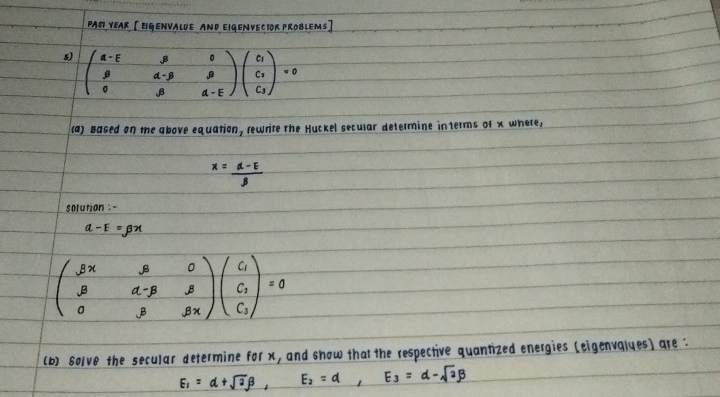 PAST YEAR [ EIGENVALUE AND EIGENVECTOR PROBLEMS]
5) ( α-E β 0 ) ( C1 )
( β α-β β ) ( C2 ) = 0
( 0 β α-E ) ( C3 )
(a) Based on the above equation, rewrite the Huckel secular determine in terms of x where,
x = α-E
β
solution :-
α-E = βx
( βx β 0 ) ( C1 )
( β α-β β ) ( C2 ) = 0
( 0 β βx ) ( C3 )
(b) Solve the secular determine for x, and show that the respective quantized energies (eigenvalues) are :
E1 = α+√2β , E2 = α , E3 = α-√2β